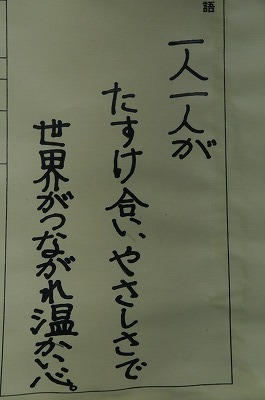 語
一人一人が
たすけ合い、やさしさで
世界がつながれ温かい心。